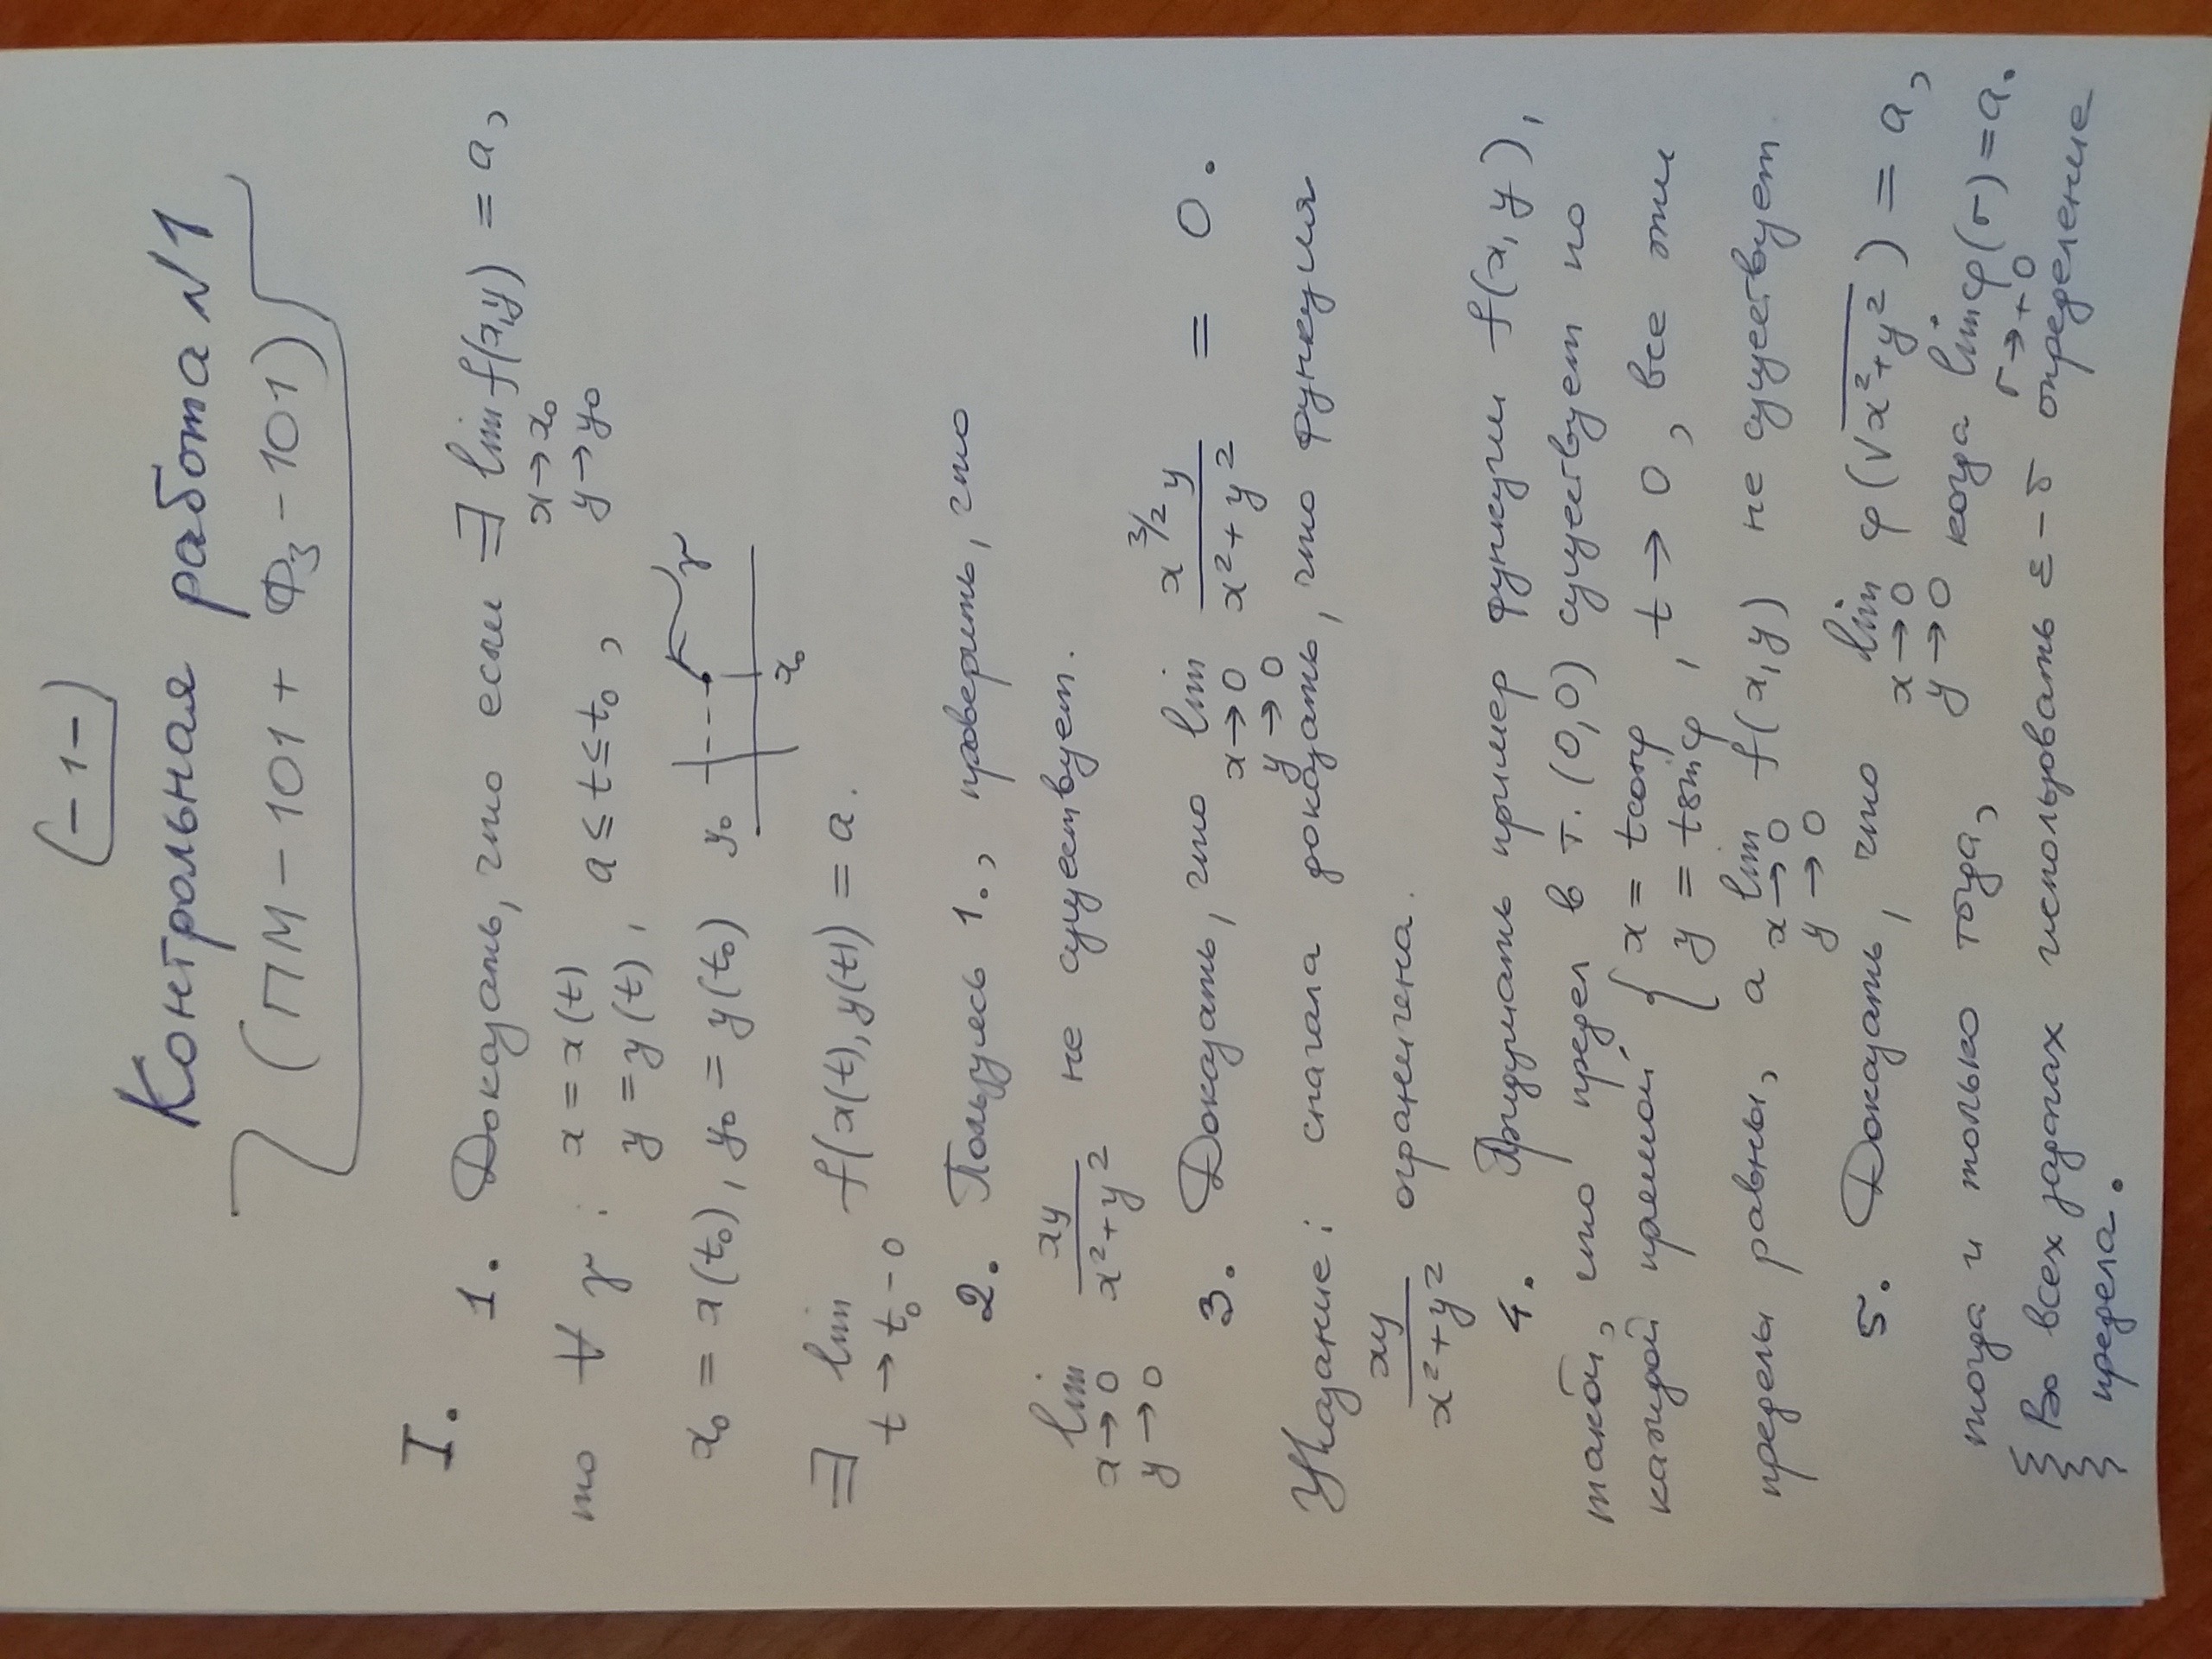 -1-
Контрольная работа №1
(ПМ-101 + ФЗ-101)
I.
1. Доказать, что если ∃ lim f(x,y) = a,
x→x₀
y→y₀
то ∀ γ: x = x(t)
y = y(t), a ≤ t ≤ t₀,
x₀ = x(t₀), y₀ = y(t₀)
y₀ γ
x₀
∃ lim f(x(t), y(t)) = a.
t→t₀-0
2. Пользуясь 1., проверить, что
lim xy/(x²+y²) не существует.
x→0
y→0
3. Доказать, что lim x^(3/2) y/(x²+y²) = 0.
x→0
y→0
Указание: сначала доказать, что функция
xy/(x²+y²) ограничена.
4. Придумать пример функции f(x,y),
такой, что предел в т. (0,0) существует по
каждой прямой { x = t cosφ
y = t sinφ, t→0, все эти
пределы равны, а lim f(x,y) не существует.
x→0
y→0
5. Доказать, что lim φ(√(x²+y²)) = a,
x→0
y→0
тогда и только тогда, когда lim φ(r) = a.
r→+0
В всех задачах использовать ε-δ определение
предела.